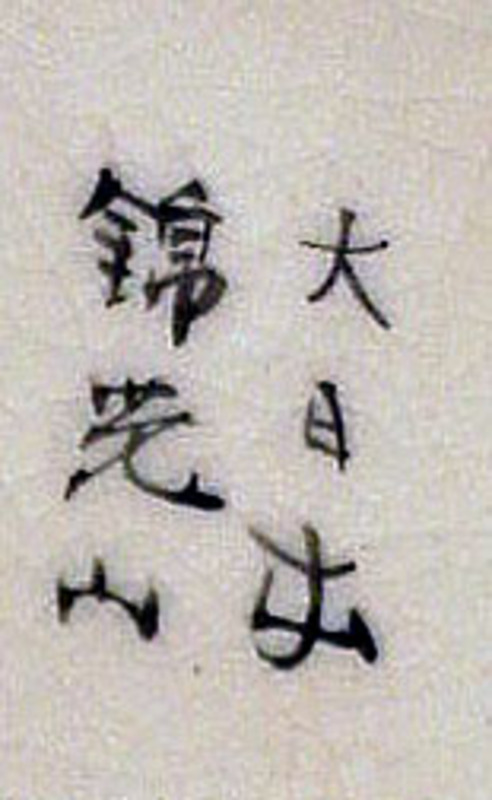 大日本
錦光山